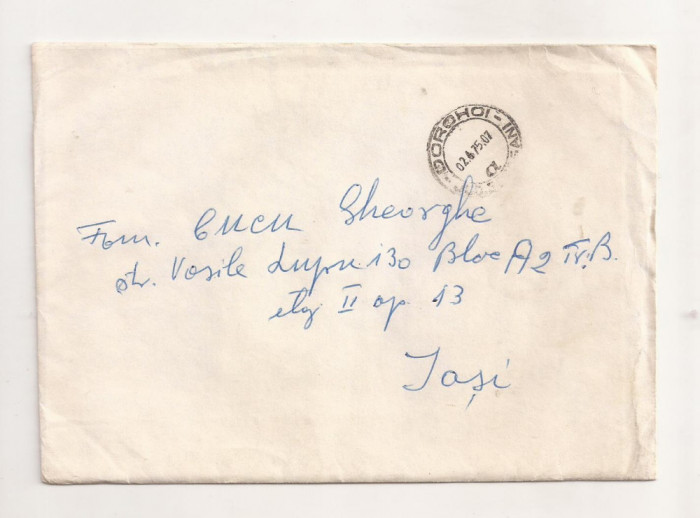 DOROHOI - 
02.6.75.07
Fam. Cucu Gheorghe
str. Vasile Lupu 130 Bloc A2 Tr. B.
etg II ap 13
Iași